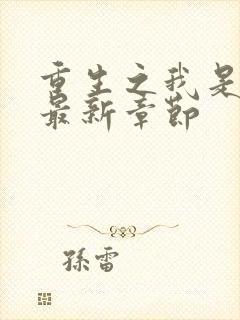 重生之我是
最新章节
孫雷